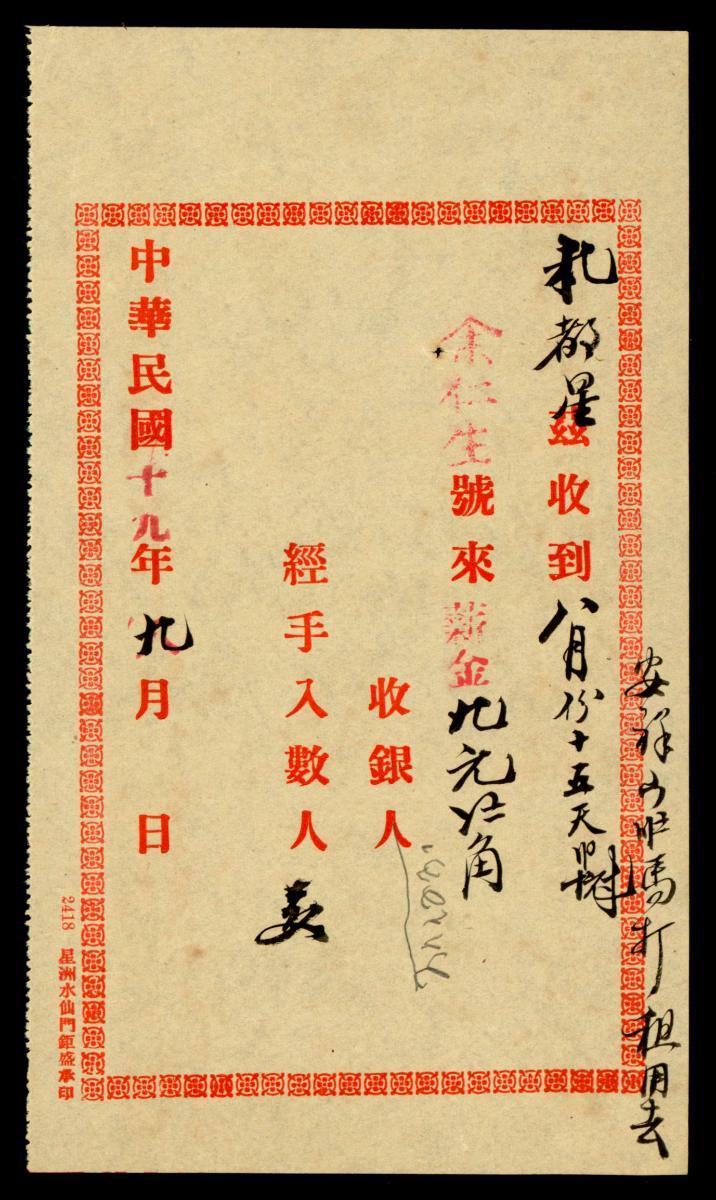 安祥 馬打租用去
都星茲收到八月份十五天
余仁生號來薪金九元 角
收銀人
經手入數人
中華民國十九年九月 日
2418 星洲水仙門鉅盛承印